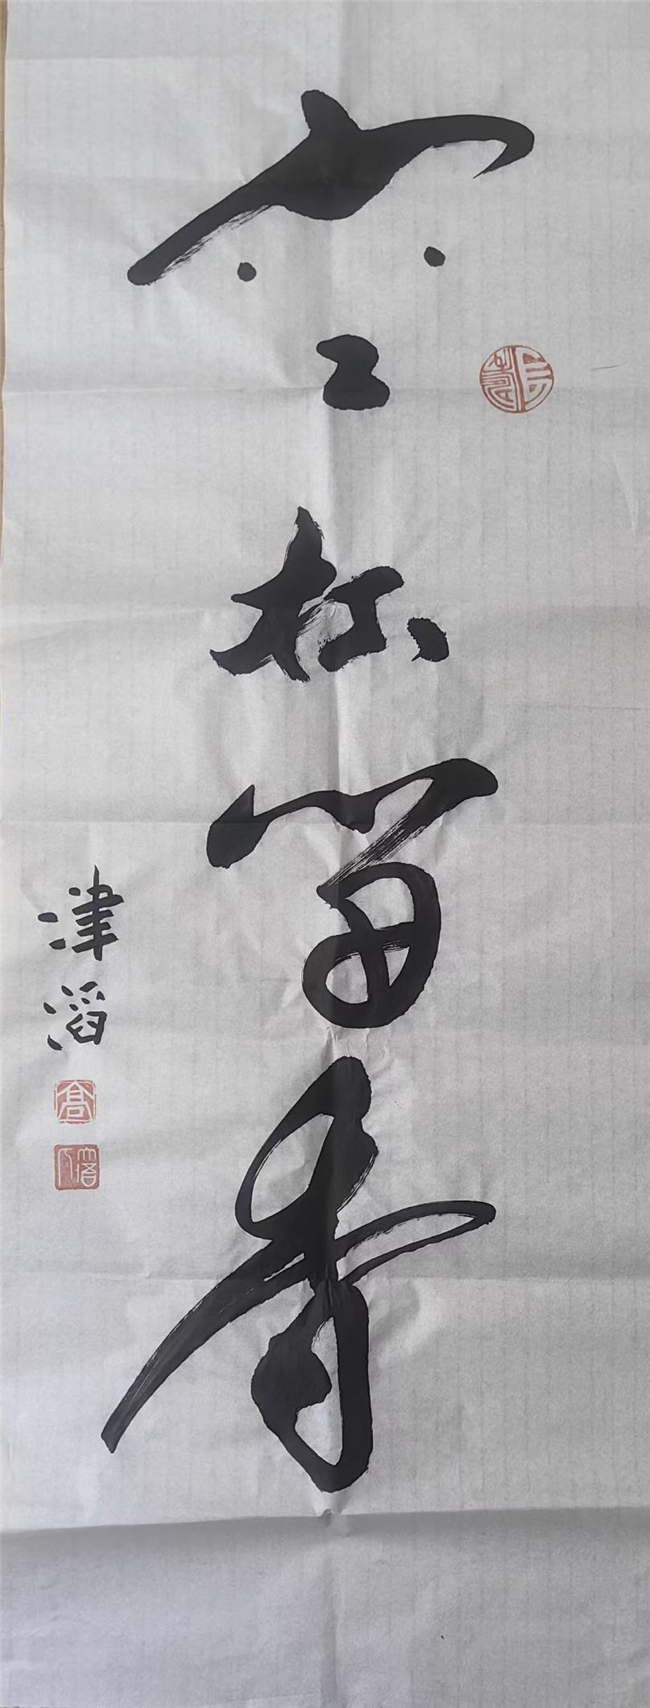 空杯留香
津滔
高